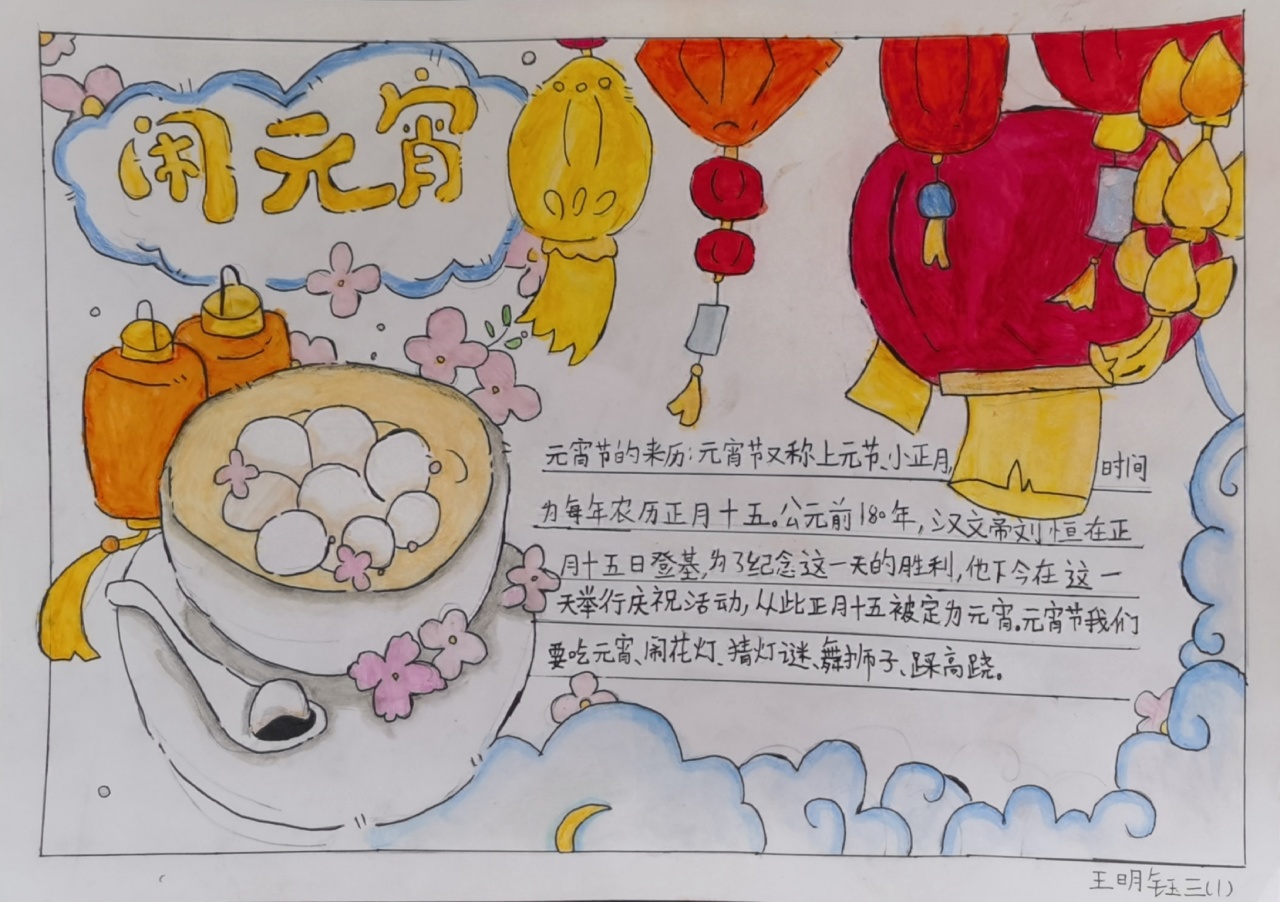 闹元宵
元宵节的来历:元宵节又称上元节、小正月,时间
为每年农历正月十五。公元前180年,汉文帝刘恒在正
月十五日登基,为了纪念这一天的胜利,他下今在这一
天举行庆祝活动,从此正月十五被定为元宵。元宵节我们
要吃元宵、闹花灯、猜灯谜、舞狮子、踩高跷。
王明钰三(1)